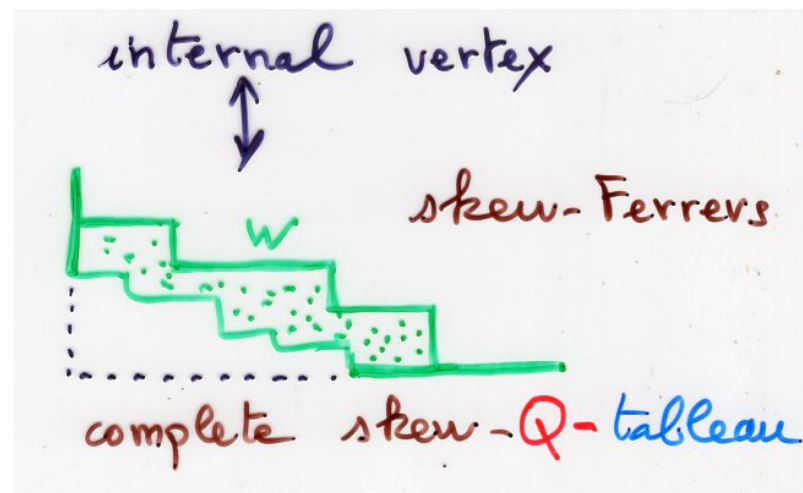 internal vertex
skew-Ferrers
w
complete skew-Q-tableau